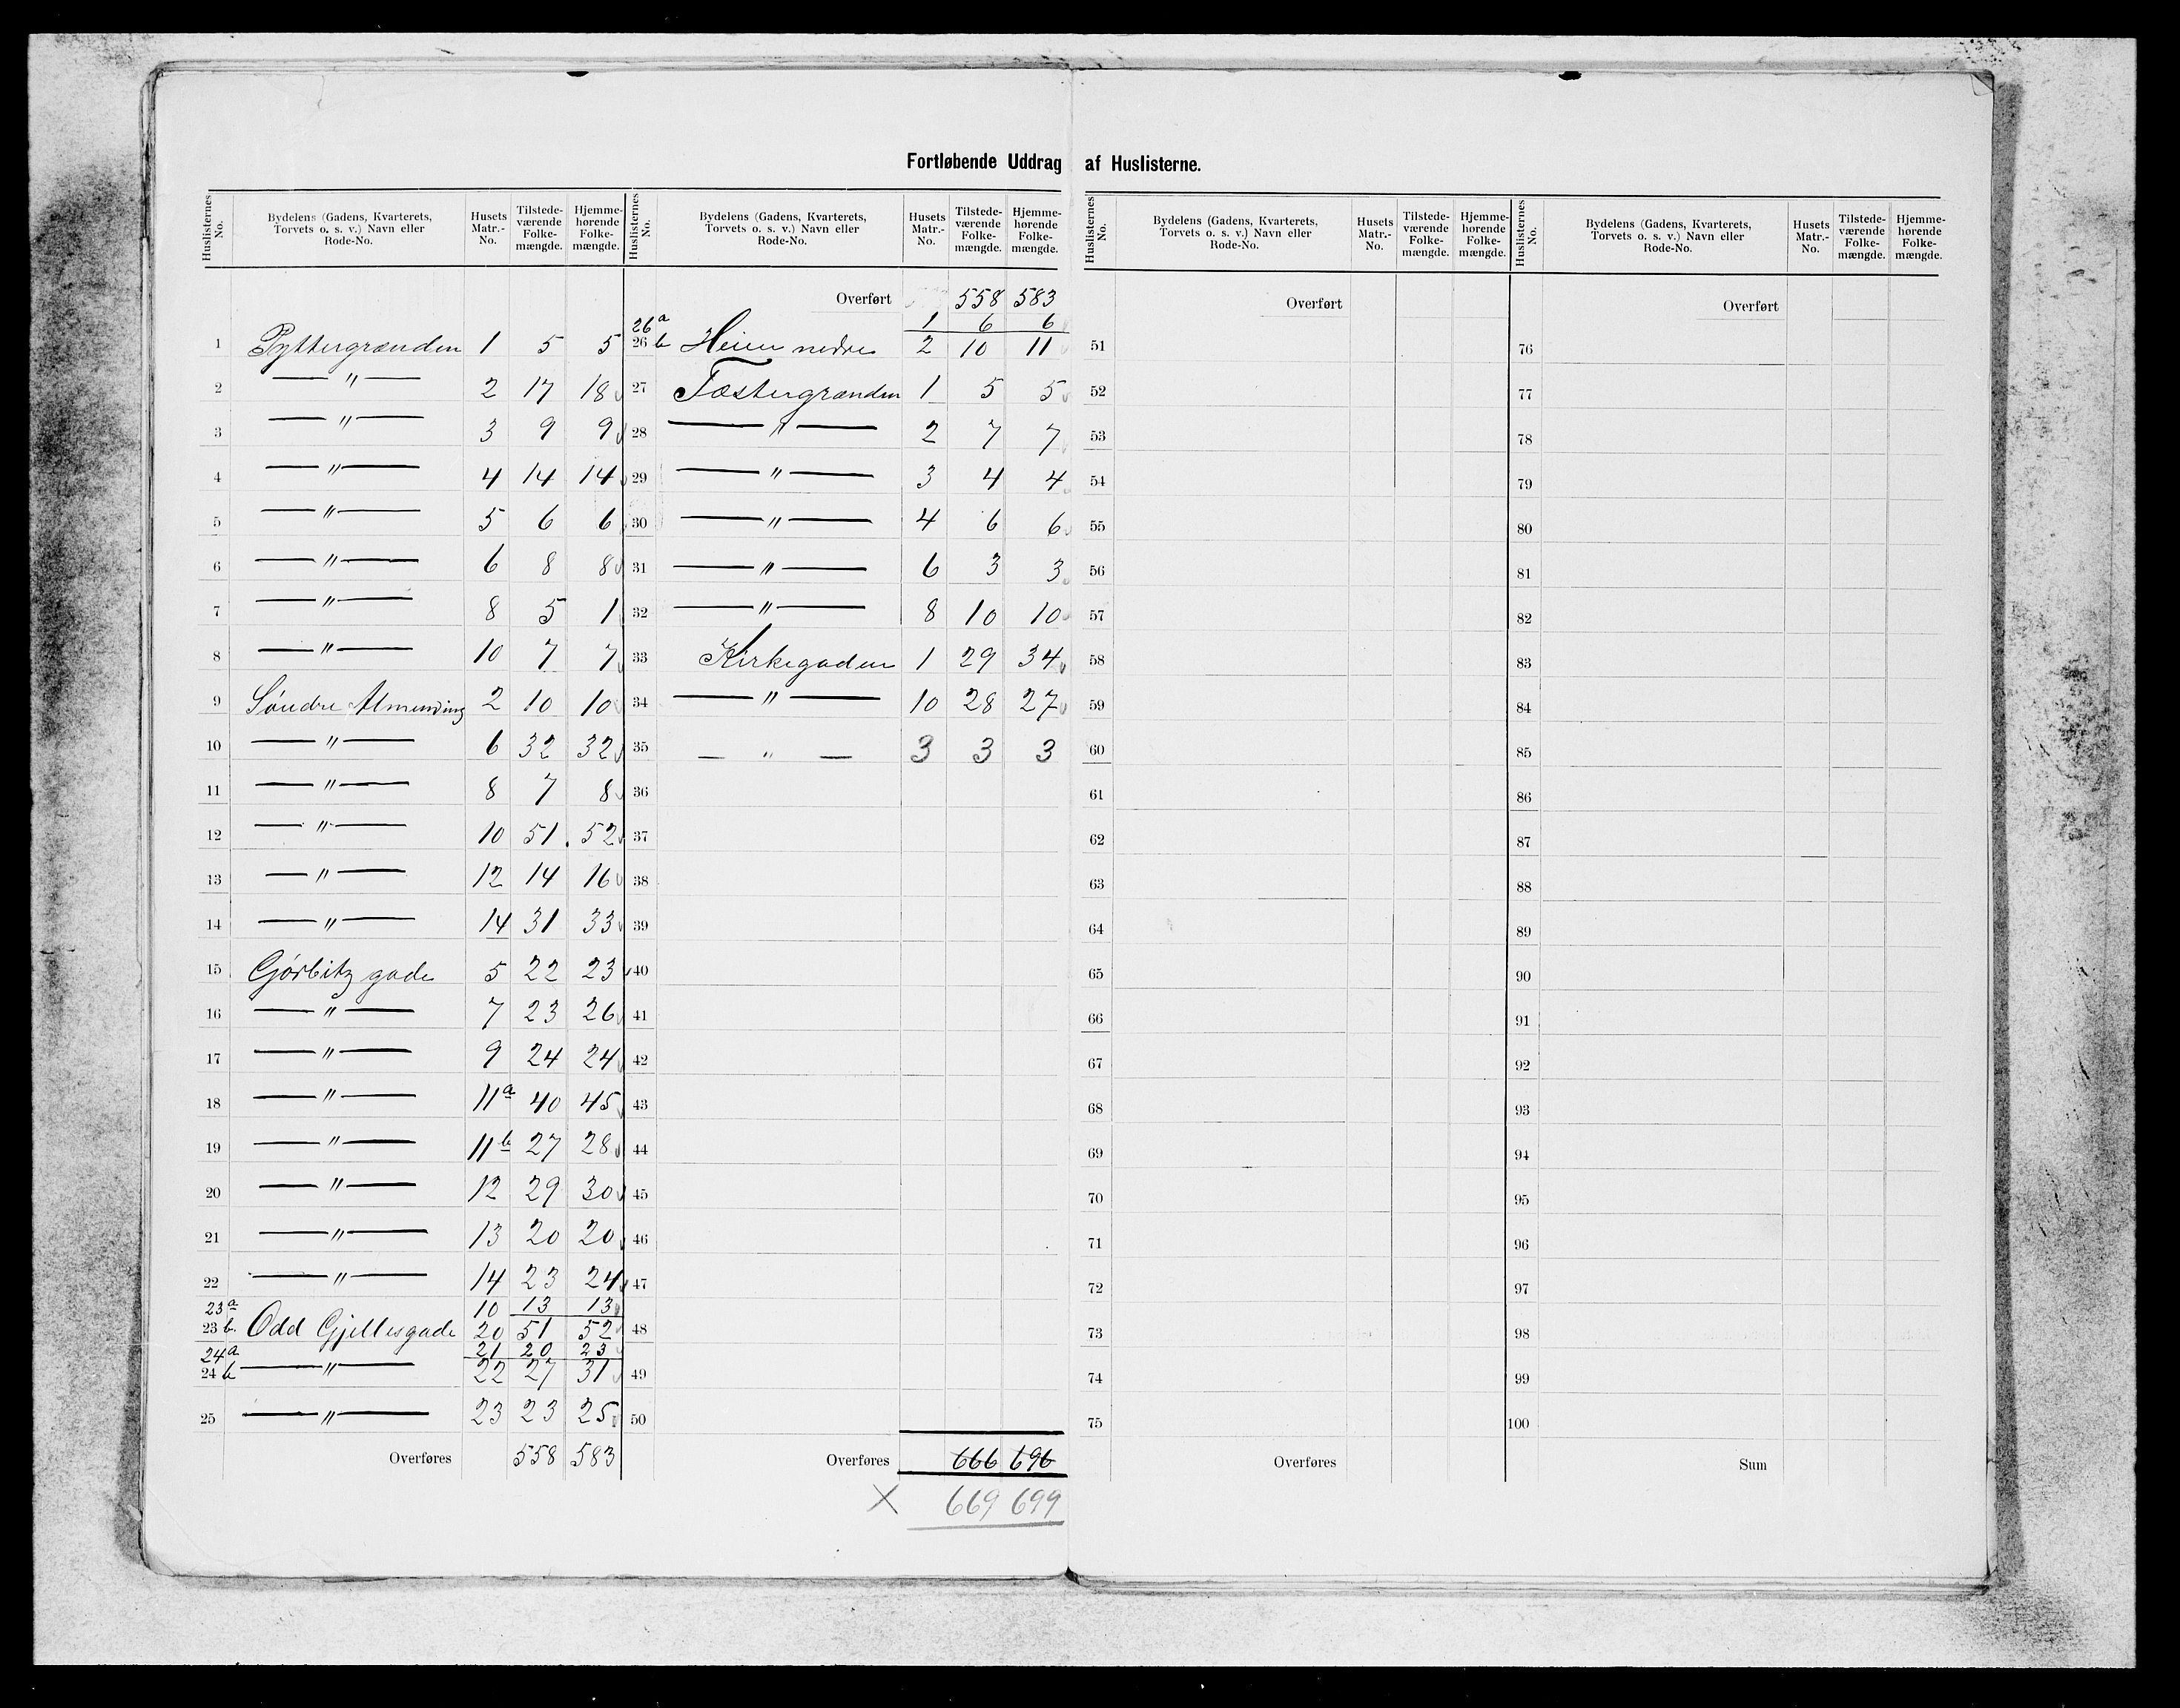 Fortløbende Uddrag af Huslisterne.
Huslisternes No. | Bydelens (Gadens, Kvarterets, Torvets o. s. v.) Navn eller Rode-No. | Husets Matr.-No. | Tilstedeværende Folkemængde. | Hjemmehørende Folkemængde.
1 Pyttergrænden 1 5 5
2 — " — 2 17 18
3 — " — 3 9 9
4 — " — 4 14 14
5 — " — 5 6 6
6 — " — 6 8 8
7 — " — 8 5 1
8 — " — 10 7 7
9 Søndre Almending 2 10 10
10 — " — 6 32 32
11 — " — 8 7 8
12 — " — 10 51. 52
13 — " — 12 14 16
14 — " — 14 31 33
15 Gjørbitz gade 5 22 23
16 — " — 7 23 26
17 — " — 9 24 24
18 — " — 11a 40 45
19 — " — 11b 27 28
20 — " — 12 29 30
21 — " — 13 20 20
22 — " — 14 23 24
23a 10 13 13
23 b. Odd Gjellesgade 20 51 52
24a 21 20 23
24 b — " — 22 27 31
25 — " — 23 23 25
Overføres 558 583
Huslisternes No. | Bydelens (Gadens, Kvarterets, Torvets o. s. v.) Navn eller Rode-No. | Husets Matr.-No. | Tilstedeværende Folkemængde. | Hjemmehørende Folkemængde.
Overført 558 583
26a 1 6 6
26 b Heien nedre 2 10 11
27 Tostergrænden 1 5 5
28 — " — 2 7 7
29 — " — 3 4 4
30 — " — 4 6 6
31 — " — 6 3 3
32 — " — 8 10 10
33 Kirkegaden 1 29 34
34 — " — 10 28 27
35 — " — 3 3 3
36
37
38
39
40
41
42
43
44
45
46
47
48
49
50
Overføres 666 696
X 669 699
Huslisternes No. | Bydelens (Gadens, Kvarterets, Torvets o. s. v.) Navn eller Rode-No. | Husets Matr.-No. | Tilstedeværende Folkemængde. | Hjemmehørende Folkemængde.
Overført
51
52
53
54
55
56
57
58
59
60
61
62
63
64
65
66
67
68
69
70
71
72
73
74
75
Overføres
Huslisternes No. | Bydelens (Gadens, Kvarterets, Torvets o. s. v.) Navn eller Rode-No. | Husets Matr.-No. | Tilstedeværende Folkemængde. | Hjemmehørende Folkemængde.
Overført
76
77
78
79
80
81
82
83
84
85
86
87
88
89
90
91
92
93
94
95
96
97
98
99
100
Sum